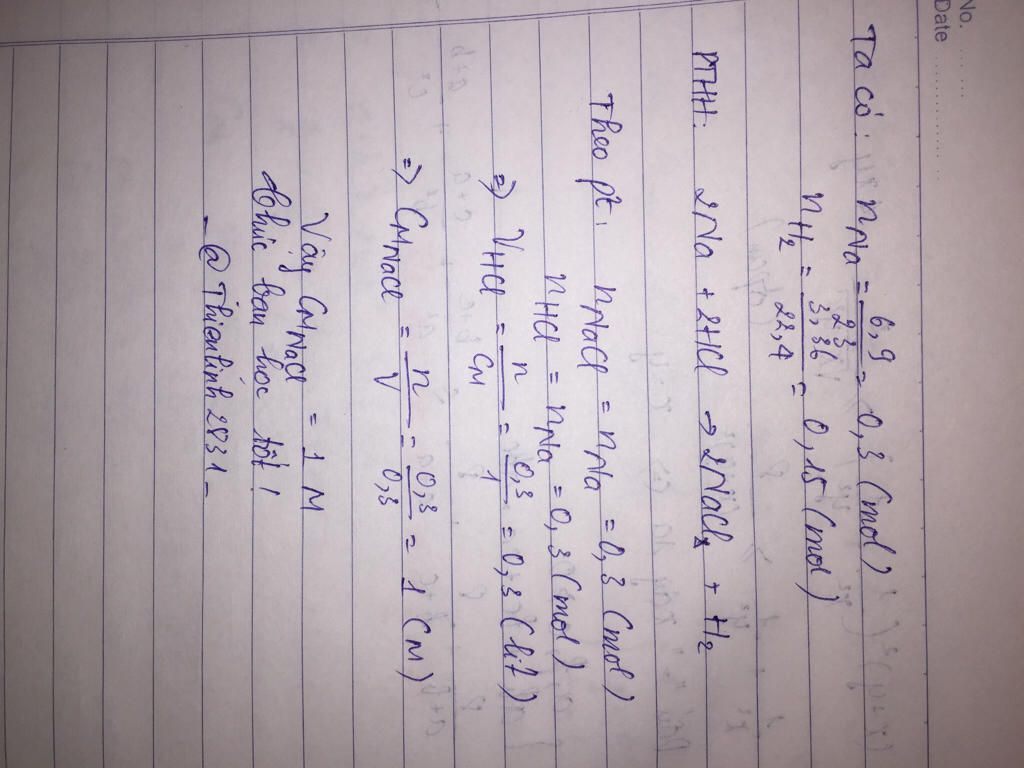 No. ...........
Date ...........
Ta có: nNa = 6,9/23 = 0,3 (mol)
nH₂ = 3,36/22,4 = 0,15 (mol)
PTHH: 2Na + 2HCl → 2NaCl + H₂
Theo pt: nNaCl = nNa = 0,3 (mol)
nHCl = nNa = 0,3 (mol)
=> VHCl = n/CM = 0,3/1 = 0,3 (lit)
=> CMNaCl = n/V = 0,3/0,3 = 1 (M)
Vậy CMNaCl = 1 M
Chúc bạn học tốt!
_ @Thienlinh2831_